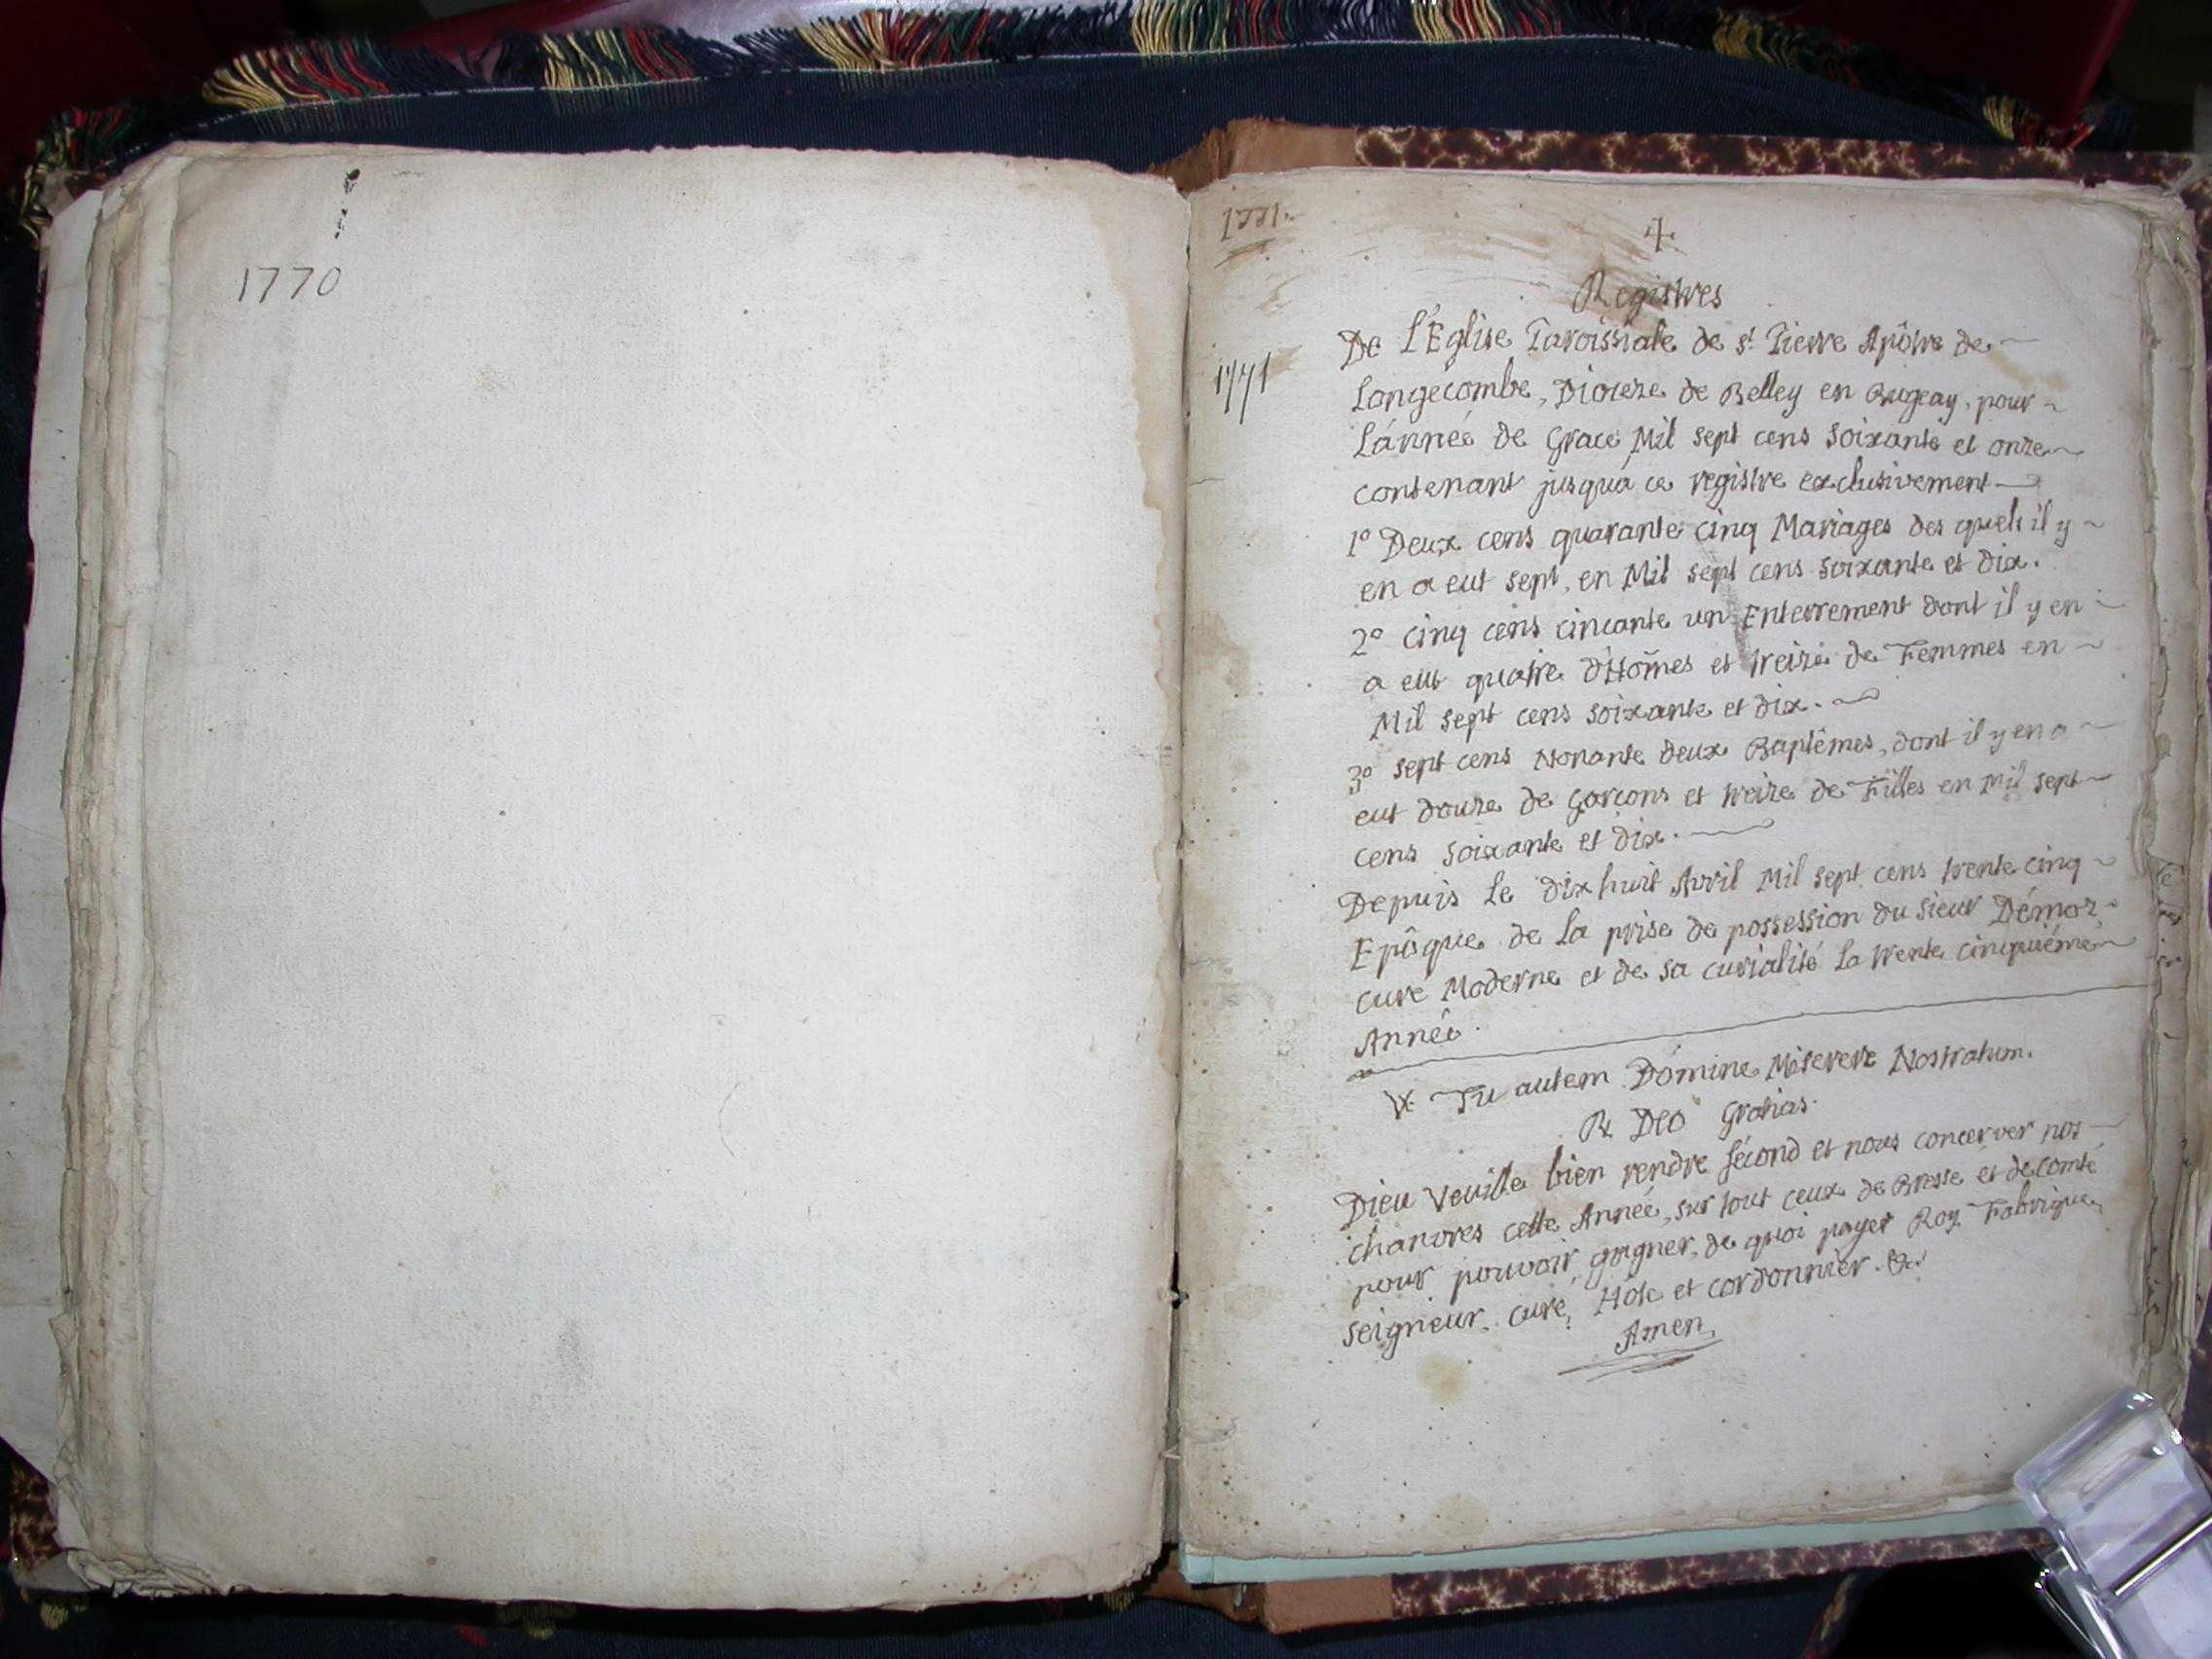 1770
1771.
Registres
1771
De L'Eglise Paroissiale de st Pierre Apôtre de
Longecombe, Dioceze de Belley en Bugeay, pour
L'année de Grace Mil sept cens soixante et onze
contenant jusqu'à ce registre exclusivement
1º Deux cens quarante cinq Mariages des quels il y
en a eut sept, en Mil sept cens soixante et dix.
2º cinq cens cincante un Enterrement dont il y en
a eut quatre d'Hom̃es et treize de Femmes en
Mil sept cens soixante et dix.
3º sept cens Nonante deux Baptêmes, dont il y en a
eut douze de Garcons et treize de Filles en Mil sept
cens soixante et dix.
Depuis Le dix huit Avril Mil sept cens trente cinq
Epôque de La prise de possession du sieur Démoz,
curé Moderne et de sa curialité La trente cinquiéme
Année.
℣. Tu autem Dómine Miserere Nostratum.
℟ Deo Gratias.
Dieu Veuille bien rendre fécond et nous concerver nos
chanvres cette Année, sur tout ceux de Bresse et de Comté
pour pouvoir gagner, de quoi payer Roy Fabrique,
seigneur, curé, Hôte et cordonnier. &c
Amen.